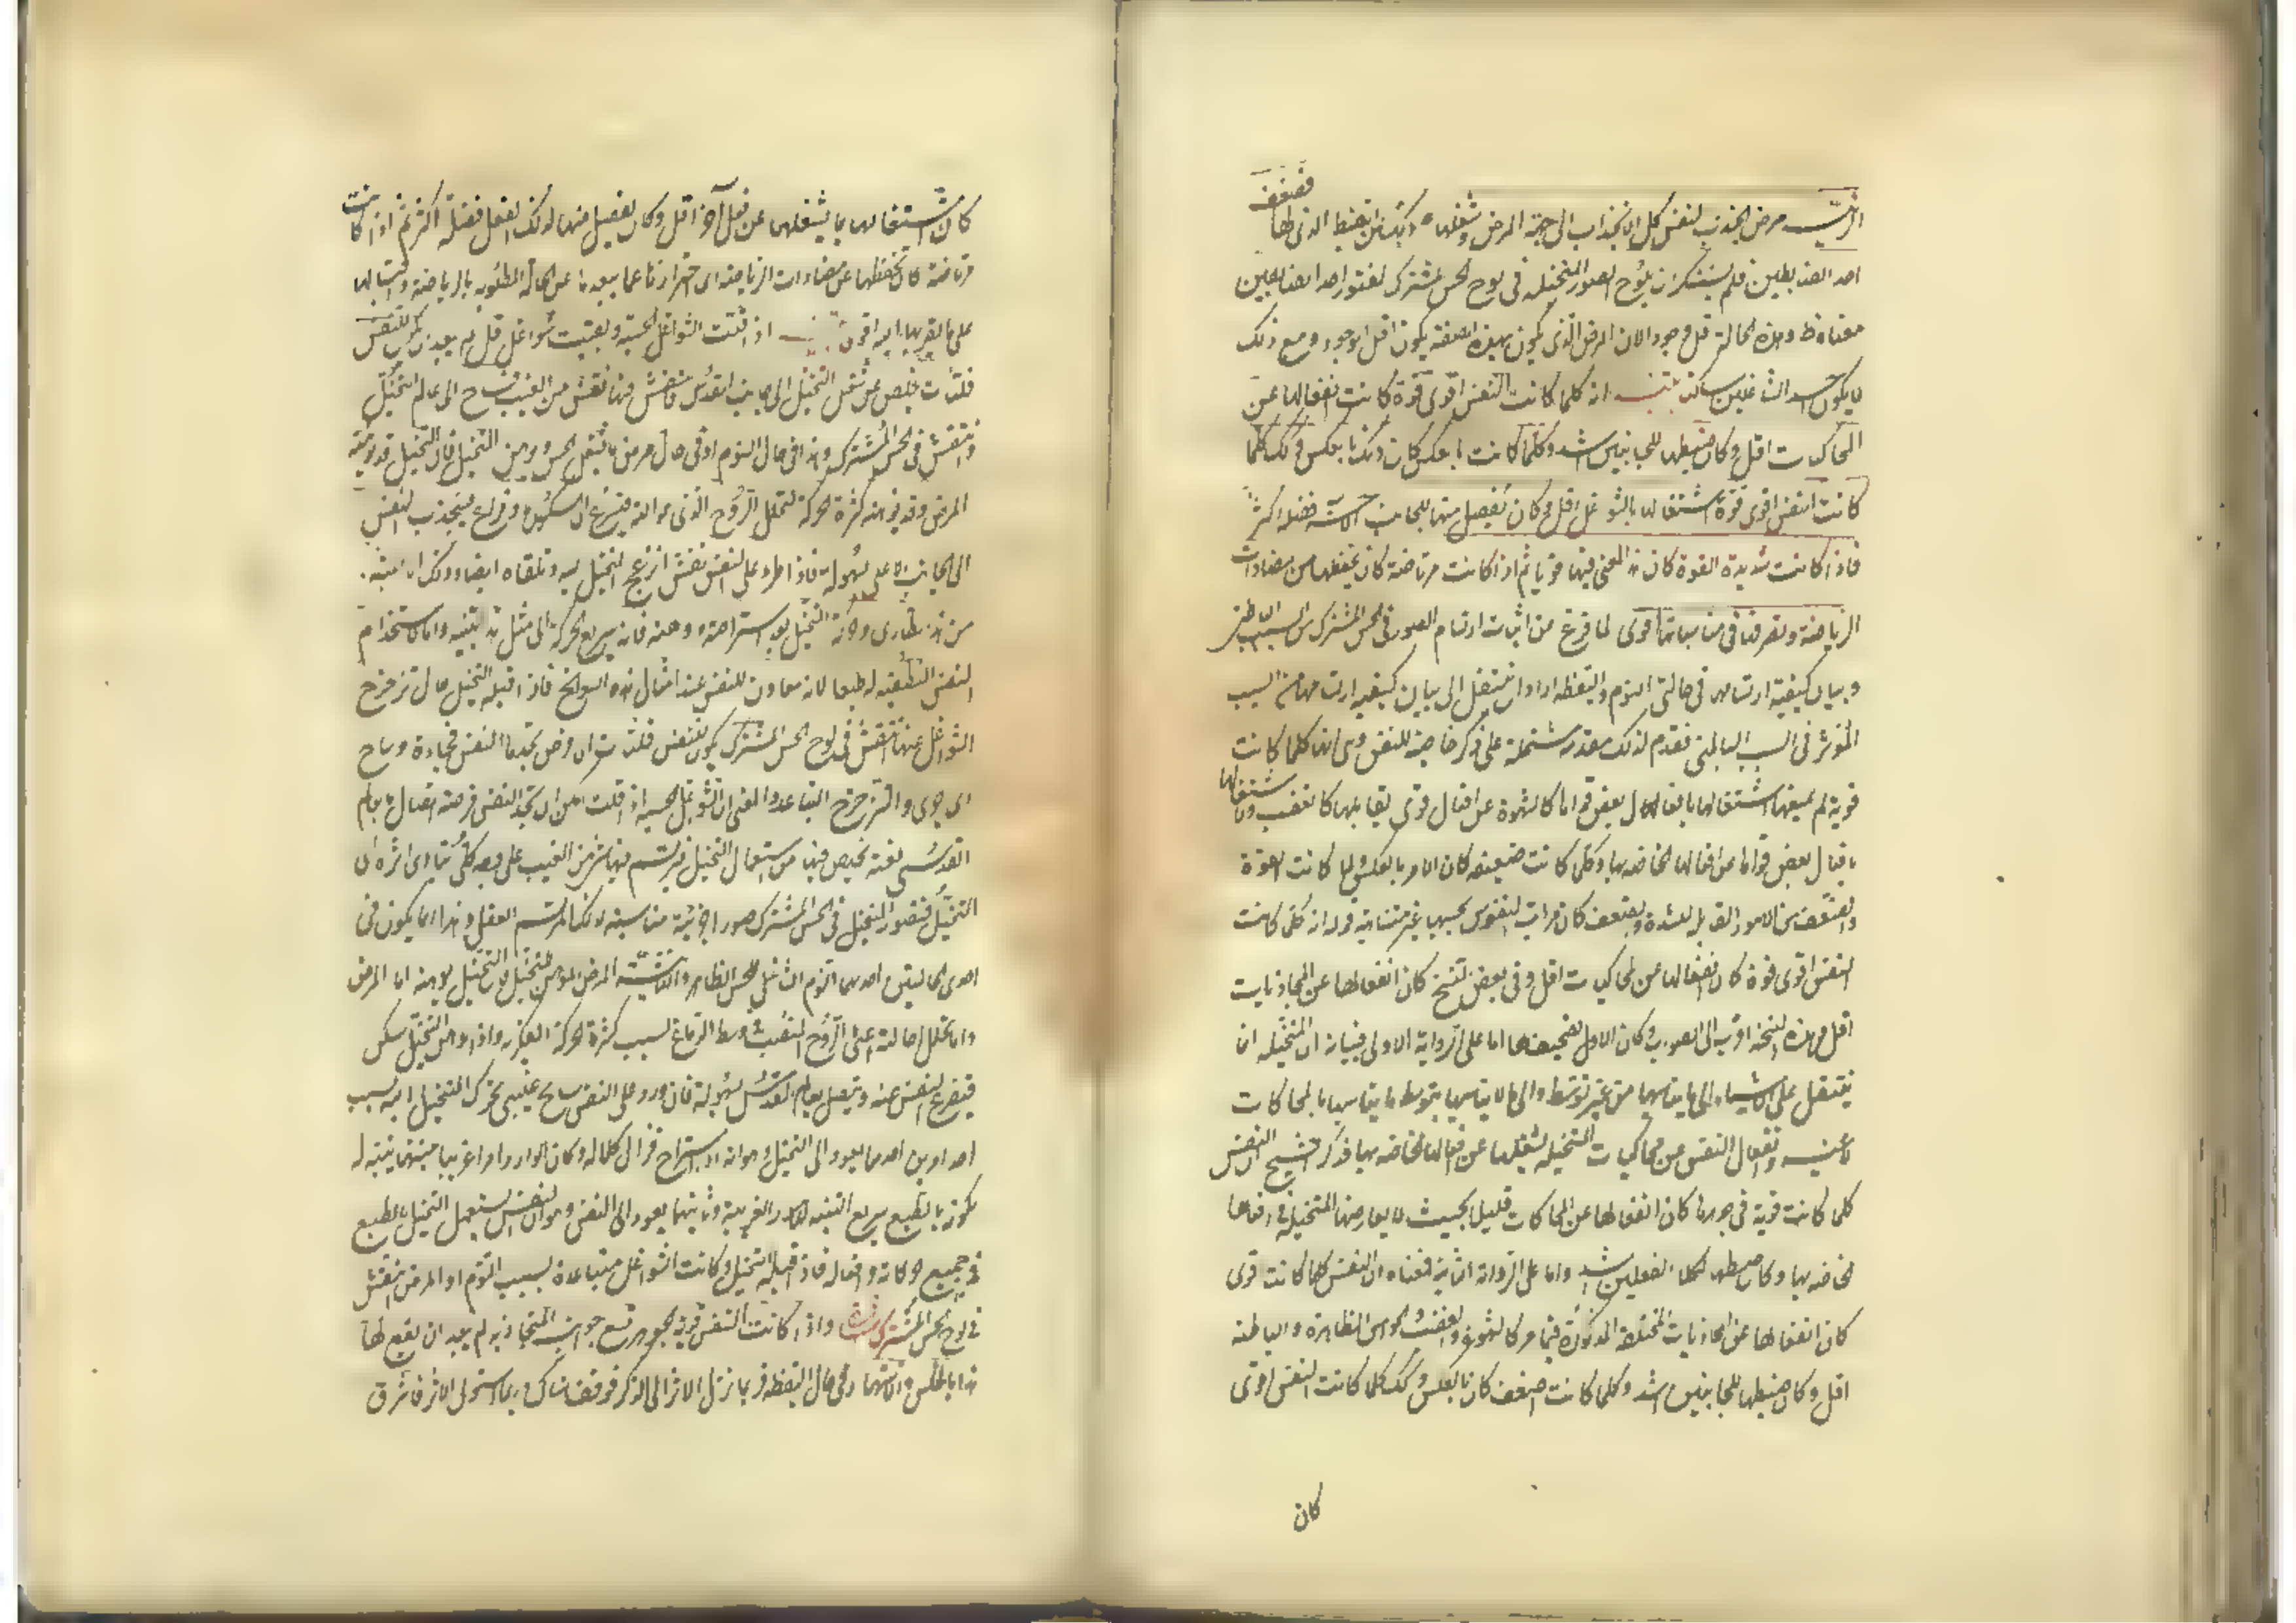 الرئيسة مرض انجذب النفس كل الانجذاب الى جهة المرض وشغلها ذلك عن الضبط الذى لها فضعف
احد الضابطين فلم يستنكر ان يلوح الصور المتخيلة فى لوح الحس المشترك لفتور احد الضابطين
معناه ظ وهذه الحالة قل وجودا لان المرض الذى يكون بهذه الصفة يكون اقل الوجود ومع ذلك
لا يكون احد الشاغلين ساكنا تنبيه انه كلما كانت النفس اقوى قوة كانت انفعالها عن
المحاكيات اقل وكان ضبطها للجانبين اشد وكلما كانت بالعكس كان ذلك بالعكس وكذلك كلما
كانت النفس اقوى قوة كان اشتغالها بالشواغل اقل وكان يفضل منها للجانب الآخر فضلة اكثر
فاذا كانت شديدة القوة كان هذا المعنى فيها قويا ثم اذا كانت مرتاضة كان تحفظها من مضادات
الرياضة وتصرفها فى مناسباتها اقوى لما فرغ من اثبات ارتسام الصور فى الحس المشترك من السبب الباطنى
وبيان كيفية ارتسامها فى حالتى النوم واليقظة اراد ان ينتقل الى بيان كيفية ارتسامها من السبب
المؤثر فى السبب الباطنى فقدم لذلك مقدمة مشتملة على ذكر خاصية للنفس وهى انها كلما كانت
قوية لم يمنعها اشتغالها بافعال بعض قواها كالشهوة عن افعال قوى يقابلها كالغضب ولا اشتغالها
بافعال بعض قواها عن افعالها الخاصة بها وكلما كانت ضعيفة كان الامر بالعكس ولما كانت القوة
والضعف من الامور القابلة للشدة والضعف كان مراتب النفوس بحسبها غير متناهية قوله انه كلما كانت
النفس اقوى قوة كان انفعالها عن المحاكيات اقل وفى بعض النسخ كان انفعالها عن المجاذبات
اقل وهذه النسخة اقرب الى الصواب وكان الاول تصحيفها اما على الرواية الاولى فبيانه ان المتخيلة انما
ينتقل عن الاشياء الى ما يناسبها من غير توسط والى ما لا يناسبها بتوسط ما يناسبها بالمحاكات
لا غيره وانفعال النفس عن محاكيات المتخيلة يشغلها عن افعالها الخاصة بها فذكر الشيخ ان النفس
كلما كانت قوية فى جوهرها كان انفعالها عن المحاكات قليلا بحيث لا يعارضها المتخيلة فى افعالها
الخاصة بها وكان ضبطها لكلا الفعلين اشد واما على الرواية الثانية فمعناه ان النفس كلما كانت قوى
كان انفعالها عن المجاذبات المختلفة المذكورة فيما مر كالشهوة والغضب والحواس الظاهرة والباطنة
اقل وكان ضبطها للجانبين اشد وكلما كانت اضعف كان بالعكس وكذلك كلما كانت النفس اقوى
كان
كان اشتغالها بما يشغلها عن فعل آخر اقل وكان يفضل منها لذلك الفعل فضلة اكثر ثم اذا كانت
مرتاضة كان تحفظها عن مضادات الرياضة اى احترازها عما يبعدها عن الحالة المطلوبة بالرياضة واقبالها
على ما يقربها اليه اقوى تنبيه اذا قلت الشواغل الحسية وبقيت شواغل اقل لم يبعد ان يكون للنفس
فلتات تخلص عن شغل التخيل الى جانب القدس فانتقش فيها نقش من الغيب فساح الى عالم التخيل
وانتقش فى الحس المشترك وهذا فى حال النوم او فى حال مرض ما يشغل الحس ويوهن التخيل فان التخيل قد يوهنه
المرض وقد يوهنه كثرة الحركة لتحلل الروح الذى هو الته فيسرع الى سكون ما وفراغ فينجذب النفس
الى الجانب الاعلى بسهولة فاذا طرء على النفس نقش انزعج التخيل اليه وتلقاه ايضا وذلك اما لمنبه
من هذا الطارى وحركة التخيل بعد استراحته او وهنه فانه سريع الحركة الى مثل هذا التنبيه واما لاستخدام
النفس النطقية له طبعا لانه معاون للنفس عند امثال هذه السوانح فاذا قبله التخيل حال تزحزح
الشواغل عنها انتقش فى لوح الحس المشترك يكون للنفس فلتات اى فرص تجدها النفس فجاءة وساح
اى جرى والتزحزح التباعد والمعنى ان الشواغل الحسية اذا قلت امكن ان تجد النفس فرصة اتصال بالعالم
القدسى بغتة تخلص فيها من استعمال التخيل فيرتسم فيها شىء من الغيب على وجه كلى ويتادى اثره الى
التخيل فتصور التخيل فى الحس المشترك صورا جزئية مناسبة لذلك المرتسم العقلى وهذا انما يكون فى
احدى الحالتين احدهما النوم الشاغل للحس الظاهر والثانية المرض الموهن للتخيل فان التخيل يوهنه اما المرض
واما تحلل الته اعنى الروح المنصب فى وسط الدماغ بسبب كثرة الحركة الفكرية واذا وهن التخيل سكن
فيتفرغ النفس عنه ويتصل بعالم القدس بسهولة فان ورد على النفس سانح غيبى تحرك التخيل اليه بسبب
احد امرين احدهما يعود الى التخيل وهو انه اذا استراح فزال كلاله وكان الوارد امرا غريبا منبها تنبه له
لكونه بالطبع سريع التنبه للامور الغريبة وثانيهما يعود الى النفس وهو ان النفس يستعمل التخيل بالطبع
فى جميع حركاته وافعاله فاذا قبله التخيل وكانت الشواغل متباعدة بسبب النوم او المرض انتقش
فى لوح الحس المشترك اشارة واذا كانت النفس قوية الجوهر تسع جوانب المتجاذبة لم يبعد ان يقع لها
هذا الخلس والانتهاز وفى حال اليقظة فربما نزل الاثر الى الذكر فوقف هناك وربما استولى الاثر فاشرق